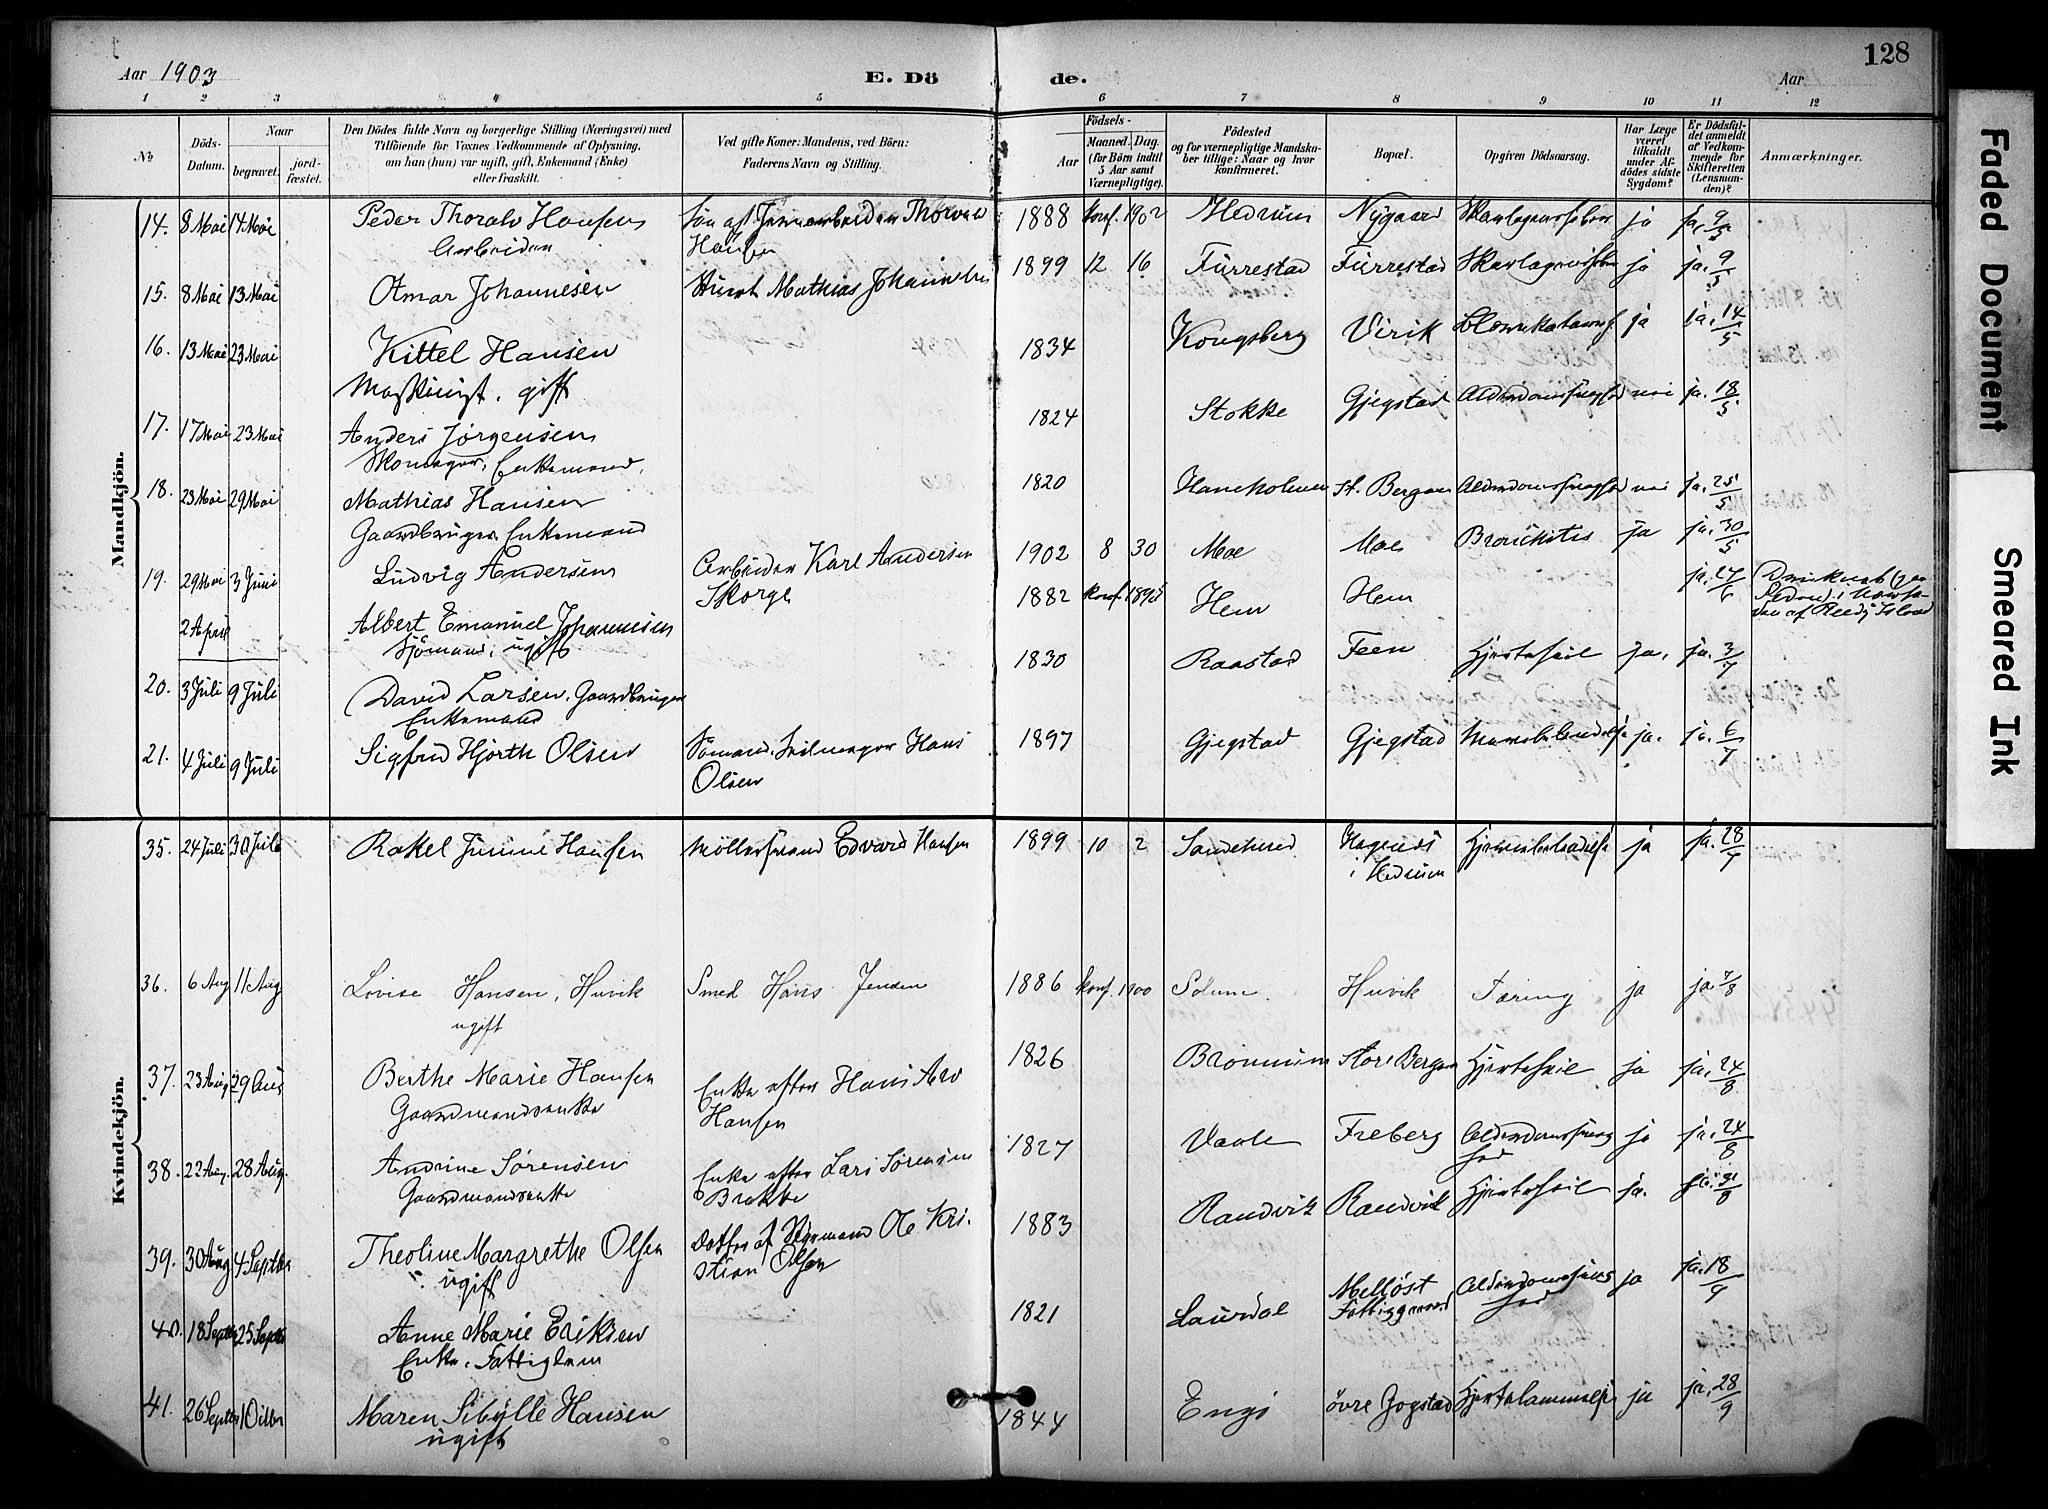 128
Aar 1903
E. Dö de.
Aar
1 2 3 4 5 6 7 8 9 10 11 12
No
Döds-Datum.
Naar
begravet.
jord-fæstet.
Den Dödes fulde Navn og borgerlige Stilling (Næringsvei) med
Tilföiende for Voxnes Vedkommende af Oplysning,
om han (hun) var ugift, gift, Enkemand (Enke)
eller fraskilt.
Ved gifte Koner: Mandens, ved Börn:
Faderens Navn og Stilling.
Födsels-
Aar
Maaned. Dag.
(for Börn indtil
5 Aar samt
Værnepligtige).
Födested
og for værnepligtige Mandska-
ber tillige: Naar og hvor
konfirmeret.
Bopæl.
Opgiven Dödsaarsag.
Har Læge
været
tilkaldt
under Af-
dödes sidste
Sygdom?
Er Dödsfal-
det anmeldt
af Vedkom-
mende for
Skifteretten
(Lensman-
den)?
Anmærkninger.
Mandkjön.
14. 8 Mai 14 Mai Peder Thoralv Hansen Søn af Thorvald 1888 konf. 1902 Hedrum Nygaard Skarlagensfeber ja ja 9/5
Arbeider Hansen
15. 8 Mai 13 Mai Otmar Johannesen Mathias Johannesen 1899 12 16 Furrestad Furrestad Skarlagensfeber ja ja. 9/5
16. 13 Mai 23 Mai Kittel Hansen 1834 Kongsberg Virik ja ja. 14/5
Maskinist, gift
17. 17 Mai 23 Mai Anders Jørgensen 1824 Stokke Gjegstad nei ja. 18/5
Skomager, Enkemand.
18. 23 Mai 29 Mai Mathias Hansen 1820 Haneholmen St. Bergan nei ja. 25/5
Gaardbruger, Enkemand
19. 29 Mai 3 Juni Ludvig Andersen Arbeider Karl Andersen 1902 8 30 Moe Moe Bronchitis ja ja. 30/5
Skorge
2 April Albert Emanuel Johannesen 1882 konf. Hem Hem ja. 27/6
Sjömand, ugift
20. 3 Juli 9 Juli David Larsen, Gaardbruger 1830 Raastad Feen Hjertefeil ja, ja. 3/7
Enkemand
21. 4 Juli 9 Juli Sigfrid Hjorth Olsen Sømand, Seilmager Hans 1897 Gjegstad Gjegstad ja. ja. 6/7
Olsen
Kvindekjön.
35. 24 Juli 30 Juli Rakel Hansen Edvard Hansen 1899 10 2 Sandeherred i Hedrum ja ja. 28/7
36. 6 Aug 11 Aug Lovise Hansen, Huvik Smed Hans Jensen 1886 konf. 1900 Solum Huvik Tæring ja ja. 7/8
ugift
37. 23 Aug 29 Aug Berthe Marie Hansen Enke efter Hans 1826 Brønnum Store Bergan Hjertefeil ja ja, 24/8
Gaardmandsenke Hansen
38. 22 Aug. 28 Aug. Andrine Sørensen Enke efter Lars Sørensen 1827 Vaale Freberg ja ja. 24/8
Gaardmandsenke Brekke
39. 30 Aug 4 Septbr Theoline Margrethe Olsen Datter af Styrmand Ole Kri- 1883 Randvik Randvik Hjertefeil ja. ja. 31/8
ugift stian Olsen
40. 18 Septbr 25 Septbr Anne Marie Eriksen 1821 Laurdal Melløst Fattiggaard ja ja. 18/9
Enke. Fattiglem
41. 26 Septbr 1 Octbr Maren Sibylle Hansen 1844 Engø øvre Gogstad Hjertelammelse ja ja. 28/9
ugift
Faded Document
Smeared Ink